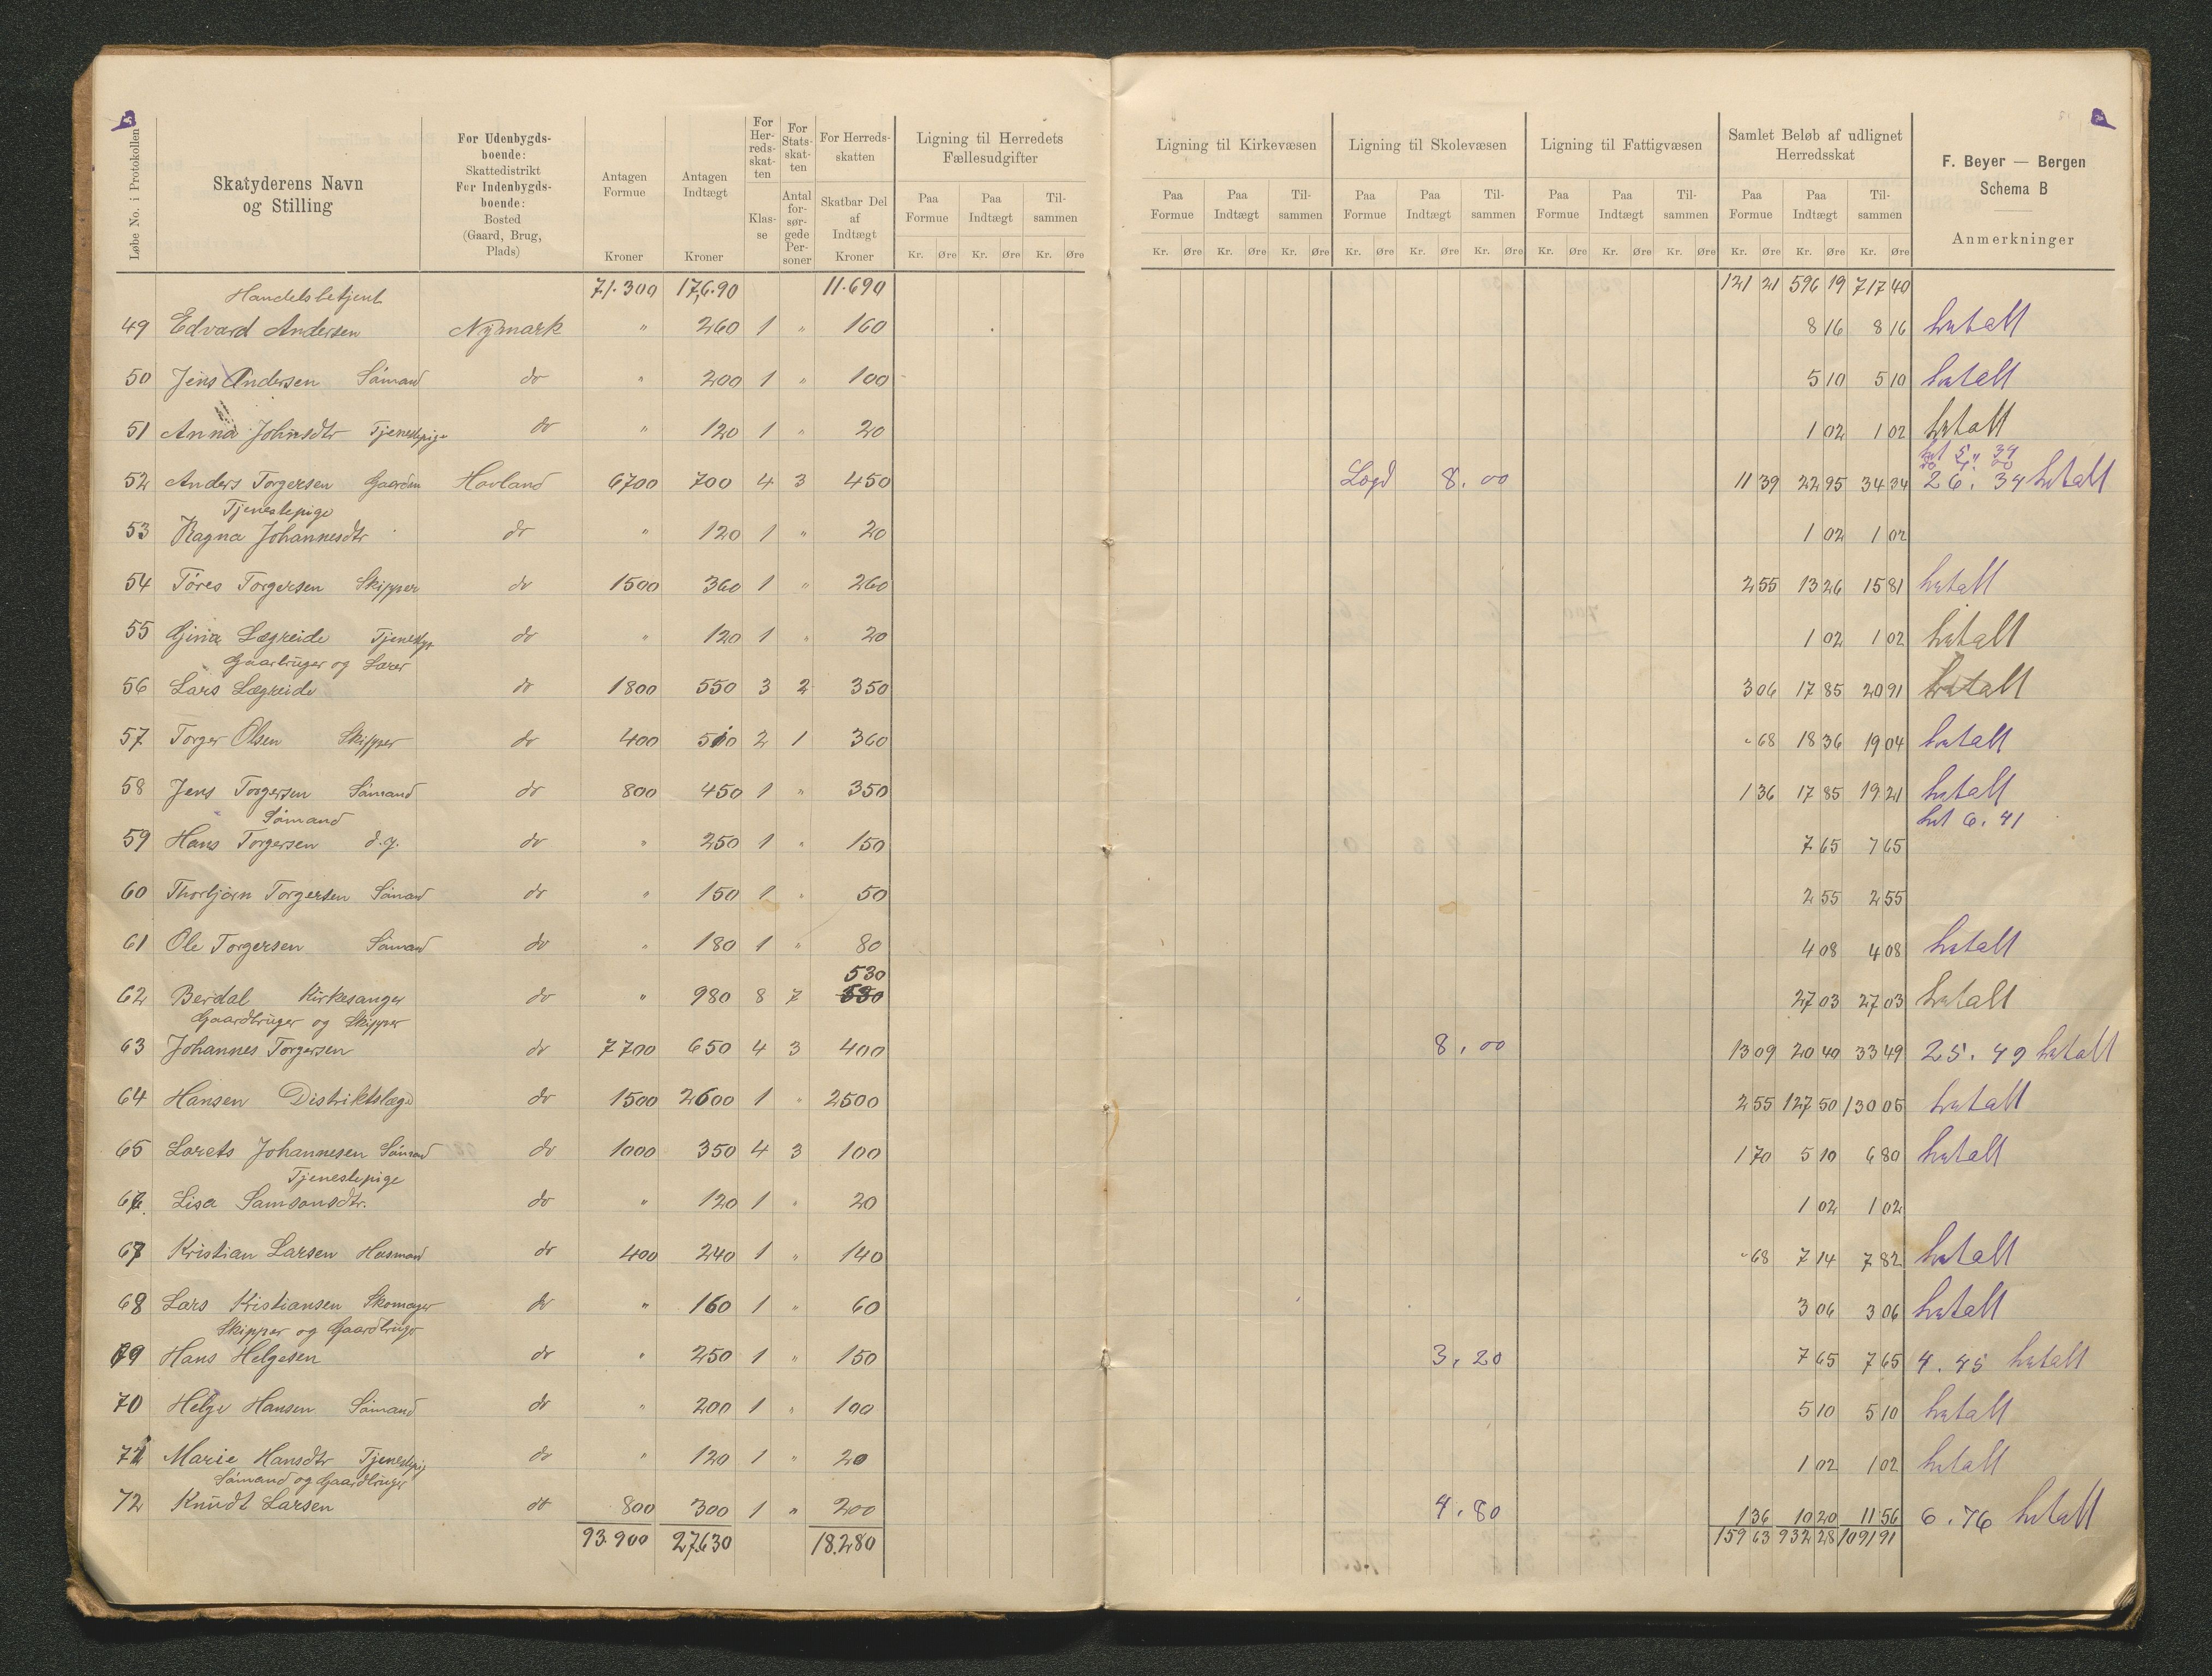 Løbe No. i Protokollen
Skatyderens Navn og Stilling
For Udenbygdsboende: Skattedistrikt For Indenbygdsboende: Bosted (Gaard, Brug, Plads)
Antagen Formue Kroner
Antagen Indtægt Kroner
For Herredsskatten Klasse
For Statsskatten Antal forsørgede Personer
For Herredsskatten Skatbar Del af Indtægt Kroner
Ligning til Herredets Fællesudgifter
Paa Formue Paa Indtægt Tilsammen
Kr. Øre Kr. Øre Kr. Øre
Ligning til Kirkevæsen
Paa Formue Paa Indtægt Tilsammen
Kr. Øre Kr. Øre Kr. Øre
Ligning til Skolevæsen
Paa Formue Paa Indtægt Tilsammen
Kr. Øre Kr. Øre Kr. Øre
Ligning til Fattigvæsen
Paa Formue Paa Indtægt Tilsammen
Kr. Øre Kr. Øre Kr. Øre
Samlet Beløb af udlignet Herredsskat
Paa Formue Paa Indtægt Tilsammen
Kr. Øre Kr. Øre Kr. Øre
F. Beyer — Bergen
Schema B
Anmerkninger
71.300 17,6.90 11.690 121 21 596 19 717 40
Handelsbetjent
49 Edvard Andersen Nymark " 260 1 " 160 8 16 8 16 betalt
50 Jens Andersen Sömand do " 200 1 " 100 5 10 5 10 betalt
51 Anna Johnsdtr Tjenestepige do " 120 1 " 20 1 02 1 02 betalt
52 Anders Torgersen Gaardm Havland 6700 700 4 3 450 8.00 11 39 22 95 34 34 26.34 betalt
Tjenestepige
53 Ragna Johannesdtr do " 120 1 " 20 1 02 1 02
54 Töres Torgersen Skipper do 1500 360 1 " 260 2 55 13 26 15 81 betalt
55 Gina Lægreide do " 120 1 " 20 1 02 1 02 betalt
Gaarbruger og Lærer
56 Lars Lægreide do 1800 550 3 2 350 3 06 17 85 20 91 betalt
57 Torger Olsen Skipper do 400 510 2 1 360 " 68 18 36 19 04 betalt
58 Jens Torgersen Sömand do 800 450 1 " 350 1 36 17 85 19 21 betalt
Sömand bet 6.41
59 Hans Torgersen d.y. do " 250 1 " 150 7 65 7 65
60 Thorbjörn Torgersen Sömand do " 150 1 " 50 2 55 2 55
61 Ole Torgersen Sömand do " 180 1 " 80 4 08 4 08 betalt
530
62 Berdal Kirkesanger do " 980 8 7 27 03 27 03 betalt
Gaardbruger og Skipper
63 Johannes Torgersen do 7700 650 4 3 400 8.00 13 09 20 40 33 49 25.49 betalt
64 Hansen Distriktslæge do 1500 2600 1 " 2500 2 55 127 50 130 05 betalt
65 Larets Johannesen Sömand do 1000 350 4 3 100 1 70 5 10 6 80 betalt
Tjenestepige
66. Lisa Samsonsdtr. do " 120 1 " 20 1 02 1 02
67 Kristian Larsen Husmand do 400 240 1 " 140 " 68 7 14 7 82 betalt
68 Lars Kristiansen Skomager do " 160 1 " 60 3 06 3 06 betalt
Skipper og Gaardbruger
69 Hans Helgesen do " 250 1 " 150 3.20 7 65 7 65 4.45 betalt
70 Helge Hansen Sömand do " 200 1 " 100 5 10 5 10 betalt
71 Marie Hansdtr Tjenestepig do " 120 1 " 20 1 02 1 02 betalt
Sömand og Gaardbruger
72 Knudt Larsen do 800 300 1 " 200 4.80 1 36 10 20 11 56 6.76 betalt
93.900 27.630 18.280 159 63 932 28 1091 91